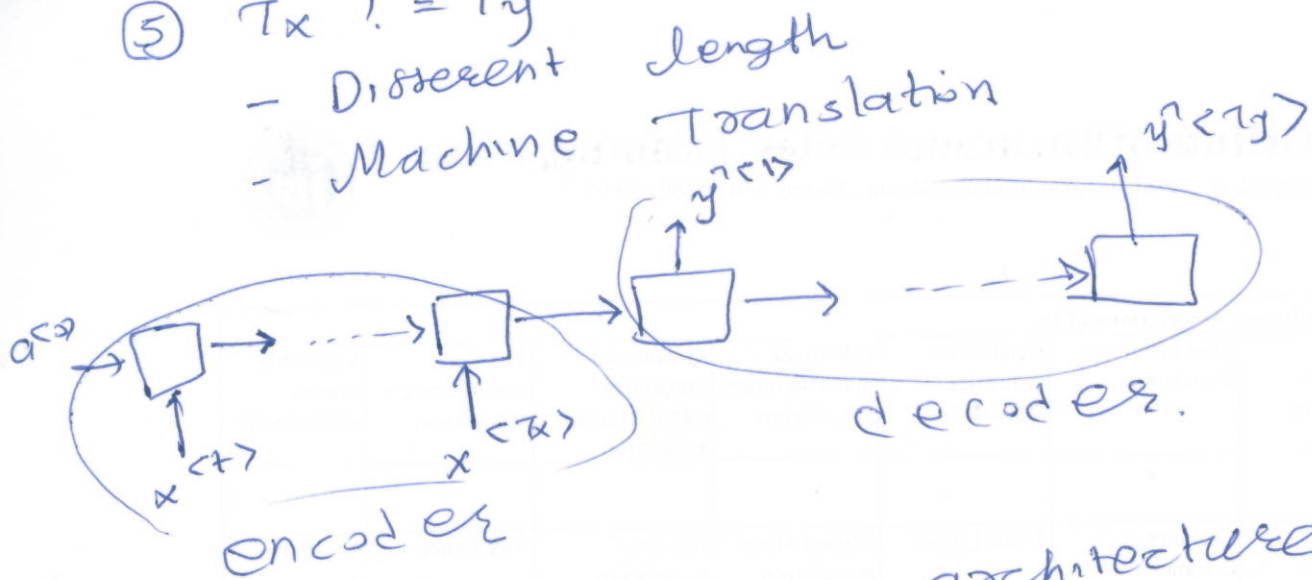 ⑤ Tx != Ty
- Different length
- Machine Translation
ŷ<1>
ŷ<Ty>
a<0>
x<t>
x<Tx>
encoder
decoder.
architecture